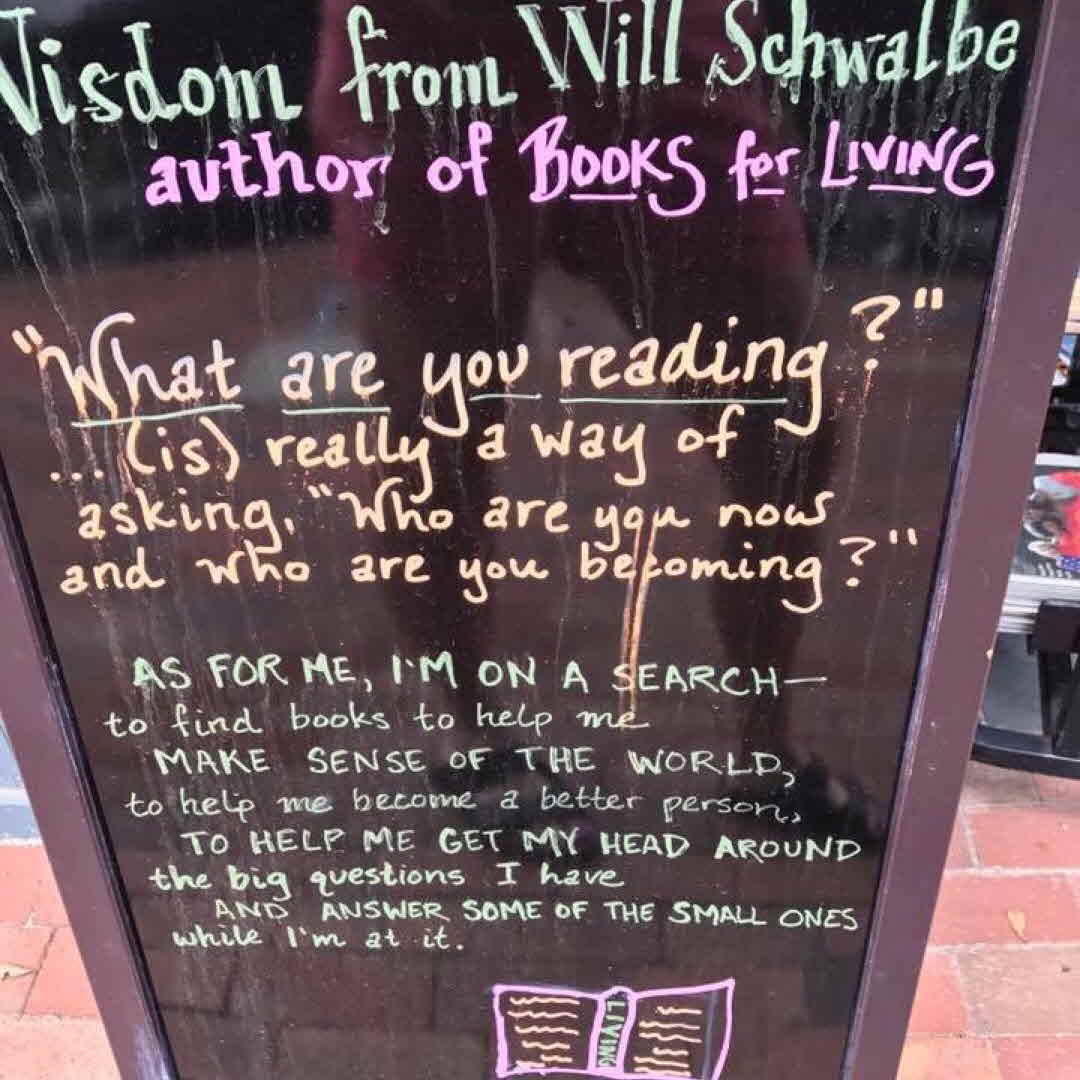 Wisdom from Will Schwalbe
author of BOOKS for LIVING
"What are you reading?"
...(is) really a way of
asking, "Who are you now
and who are you becoming?"
AS FOR ME, I'M ON A SEARCH—
to find books to help me
MAKE SENSE OF THE WORLD,
to help me become a better person,
TO HELP ME GET MY HEAD AROUND
the big questions I have
AND ANSWER SOME OF THE SMALL ONES
while I'm at it.
LIVING